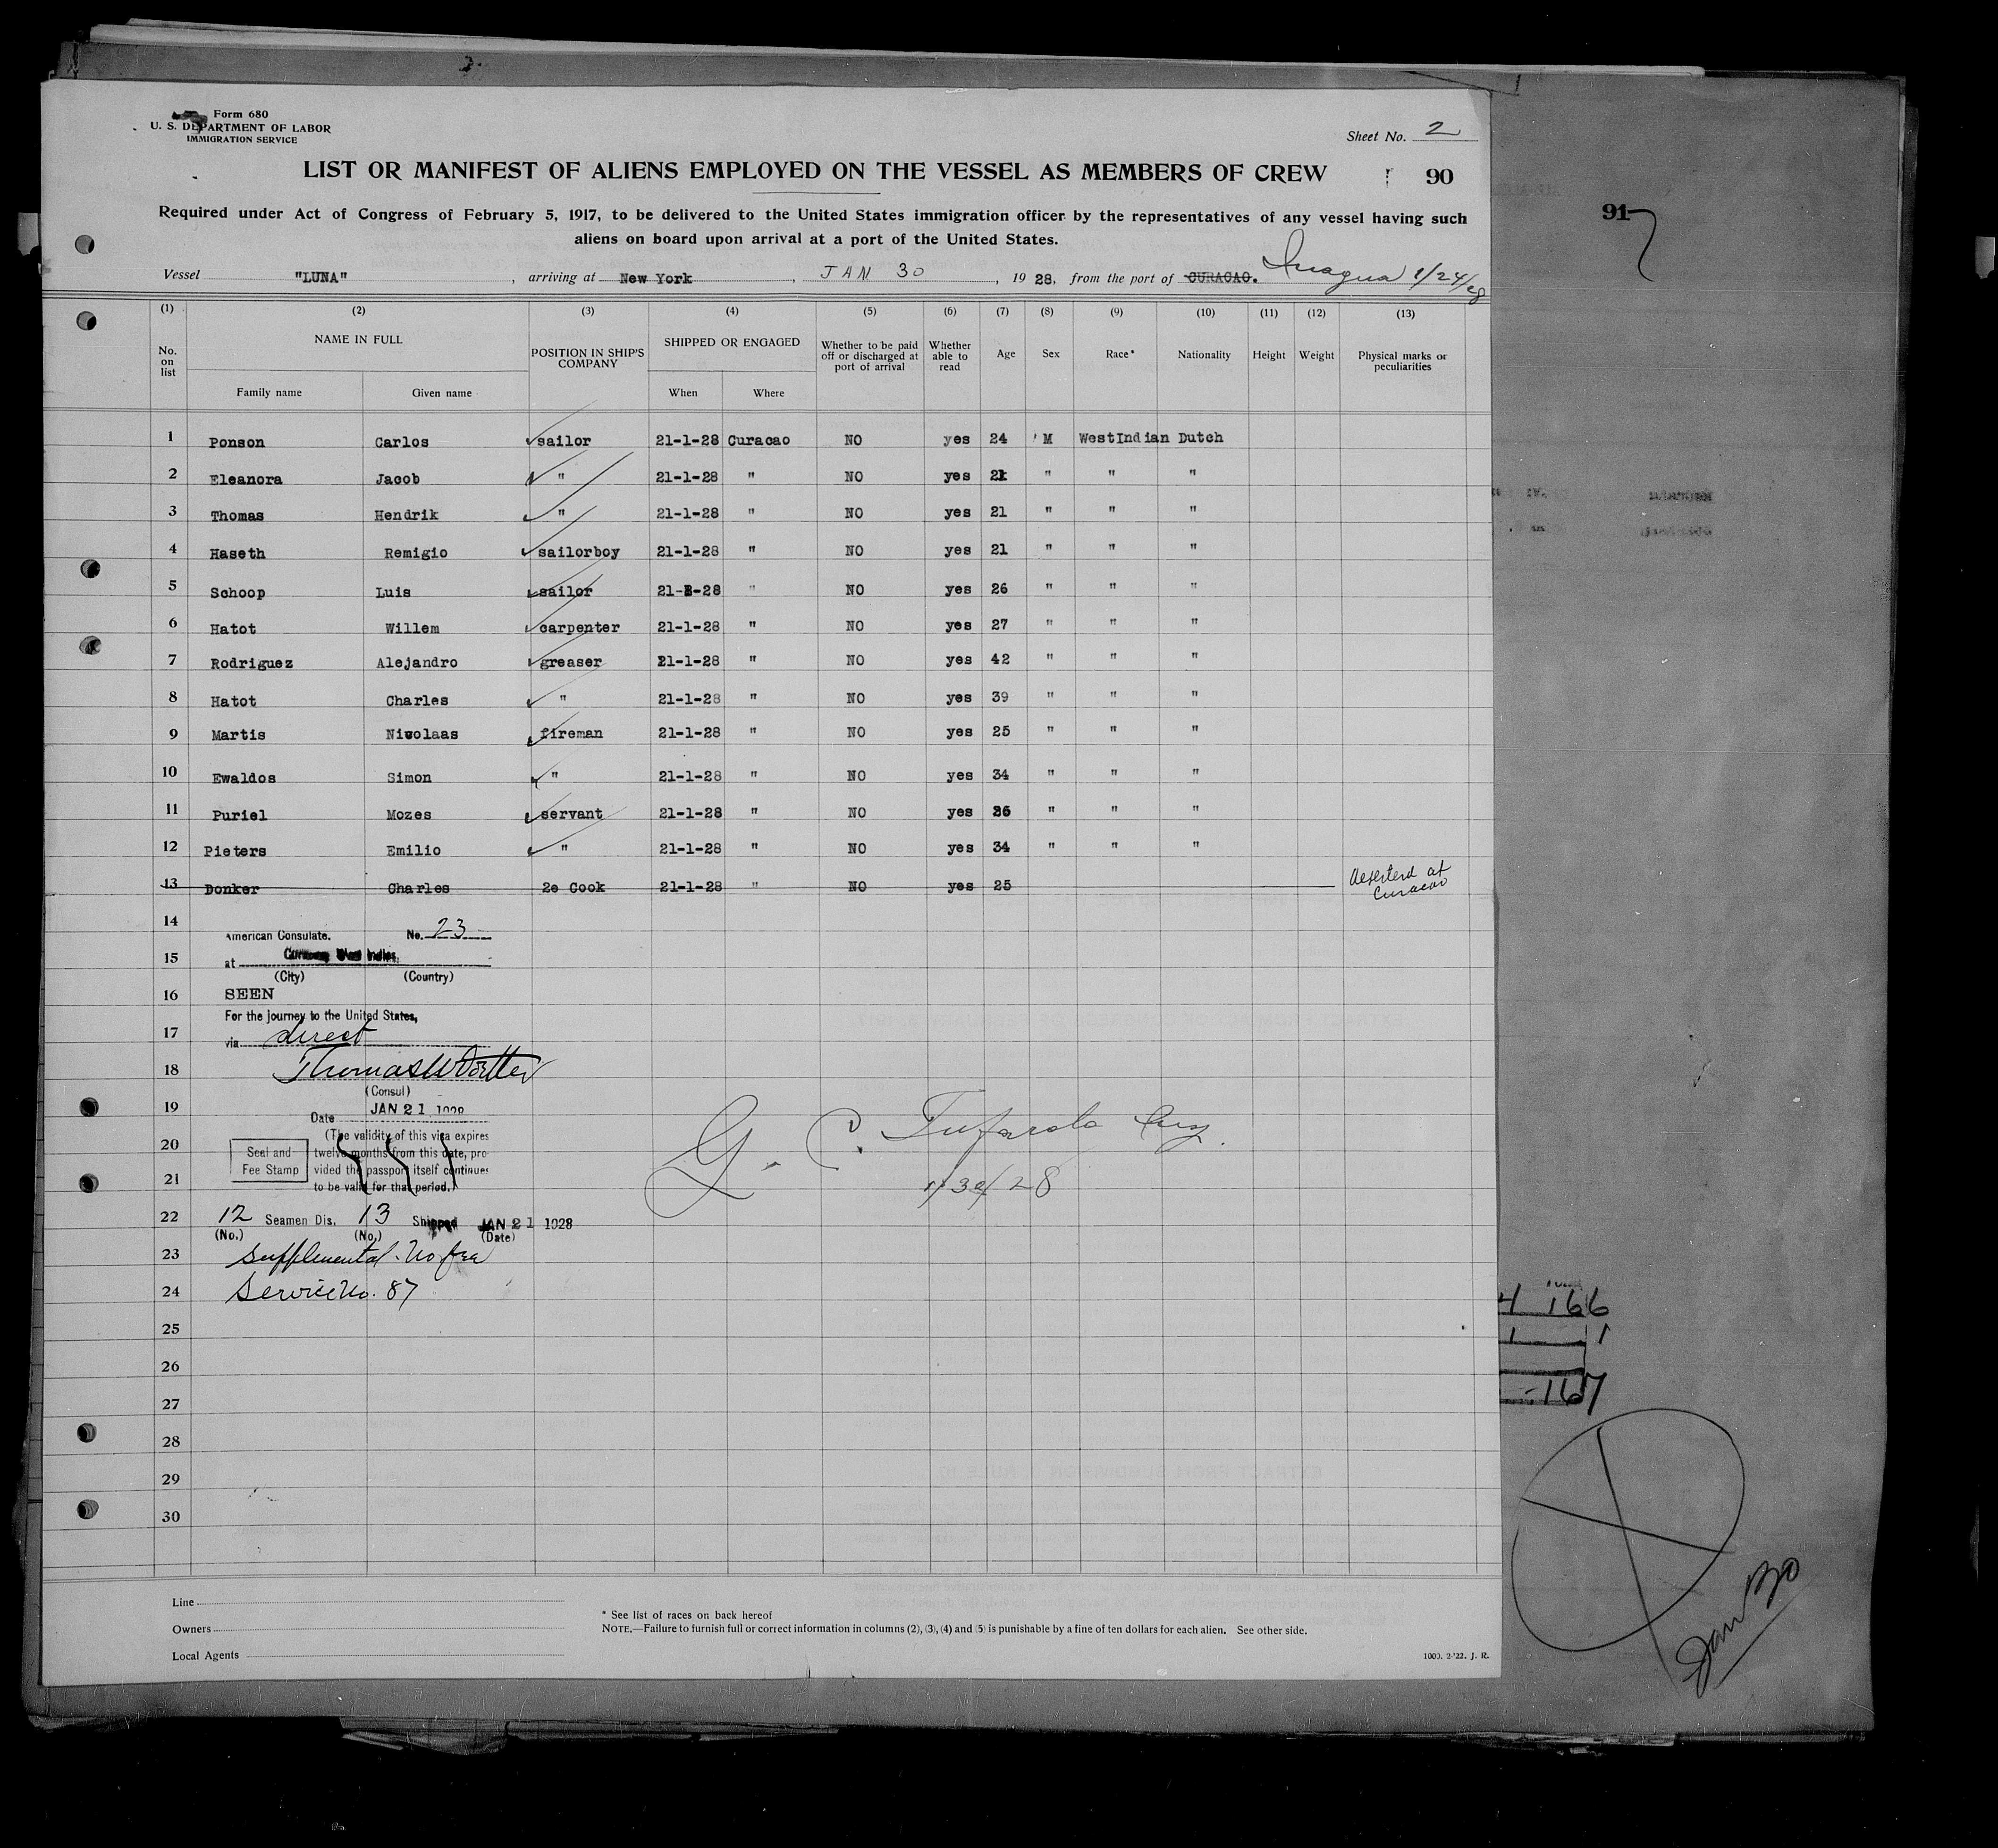 Form 680
U. S. DEPARTMENT OF LABOR
IMMIGRATION SERVICE
Sheet No. 2
LIST OR MANIFEST OF ALIENS EMPLOYED ON THE VESSEL AS MEMBERS OF CREW 90
91
Required under Act of Congress of February 5, 1917, to be delivered to the United States immigration officer by the representatives of any vessel having such
aliens on board upon arrival at a port of the United States.
Vessel "LUNA", arriving at New York, JAN 30, 1928, from the port of CURACAO. Inagua 1/24/28
(1) (2) (3) (4) (5) (6) (7) (8) (9) (10) (11) (12) (13)
No. on list NAME IN FULL Family name Given name POSITION IN SHIP'S COMPANY SHIPPED OR ENGAGED When Where Whether to be paid off or discharged at port of arrival Whether able to read Age Sex Race* Nationality Height Weight Physical marks or peculiarities
1 Ponson Carlos sailor 21-1-28 Curacao NO yes 24 M WestIndian Dutch
2 Eleanora Jacob " 21-1-28 " NO yes 21 " " "
3 Thomas Hendrik " 21-1-28 " NO yes 21 " " "
4 Haseth Remigio sailorboy 21-1-28 " NO yes 21 " " "
5 Schoop Luis sailor 21-1-28 " NO yes 26 " " "
6 Hatot Willem carpenter 21-1-28 " NO yes 27 " " "
7 Rodriguez Alejandro greaser 21-1-28 " NO yes 42 " " "
8 Hatot Charles " 21-1-28 " NO yes 39 " " "
9 Martis Nicolaas fireman 21-1-28 " NO yes 25 " " "
10 Ewaldos Simon " 21-1-28 " NO yes 34 " " "
11 Puriel Mozes servant 21-1-28 " NO yes 36 " " "
12 Pieters Emilio " 21-1-28 " NO yes 34 " " "
13 Donker Charles 2e Cook 21-1-28 " NO yes 25 deserted at Curacao
14
American Consulate. No. 23
15
at Curacao West Indies.
(City) (Country)
16 SEEN
For the journey to the United States,
17 via direct
18 Thomas W
(Consul)
19 Date JAN 21 1928
(The validity of this visa expires
20 Seal and Fee Stamp twelve months from this date, pro
vided the passport itself continues
21 to be valid for that period.)
G. C.
1/30/28
22 12 Seamen Dis. 13 Shipped JAN 21 1928
(No.) (No.) (Date)
23 Supplemental. No fee
24 Service No. 87
25
26
27
28
29
30
4 166
1 1
167
Jan 30
Line
Owners
Local Agents
* See list of races on back hereof
NOTE.—Failure to furnish full or correct information in columns (2), (3), (4) and (5) is punishable by a fine of ten dollars for each alien. See other side.
1000. 2-'22. J. R.